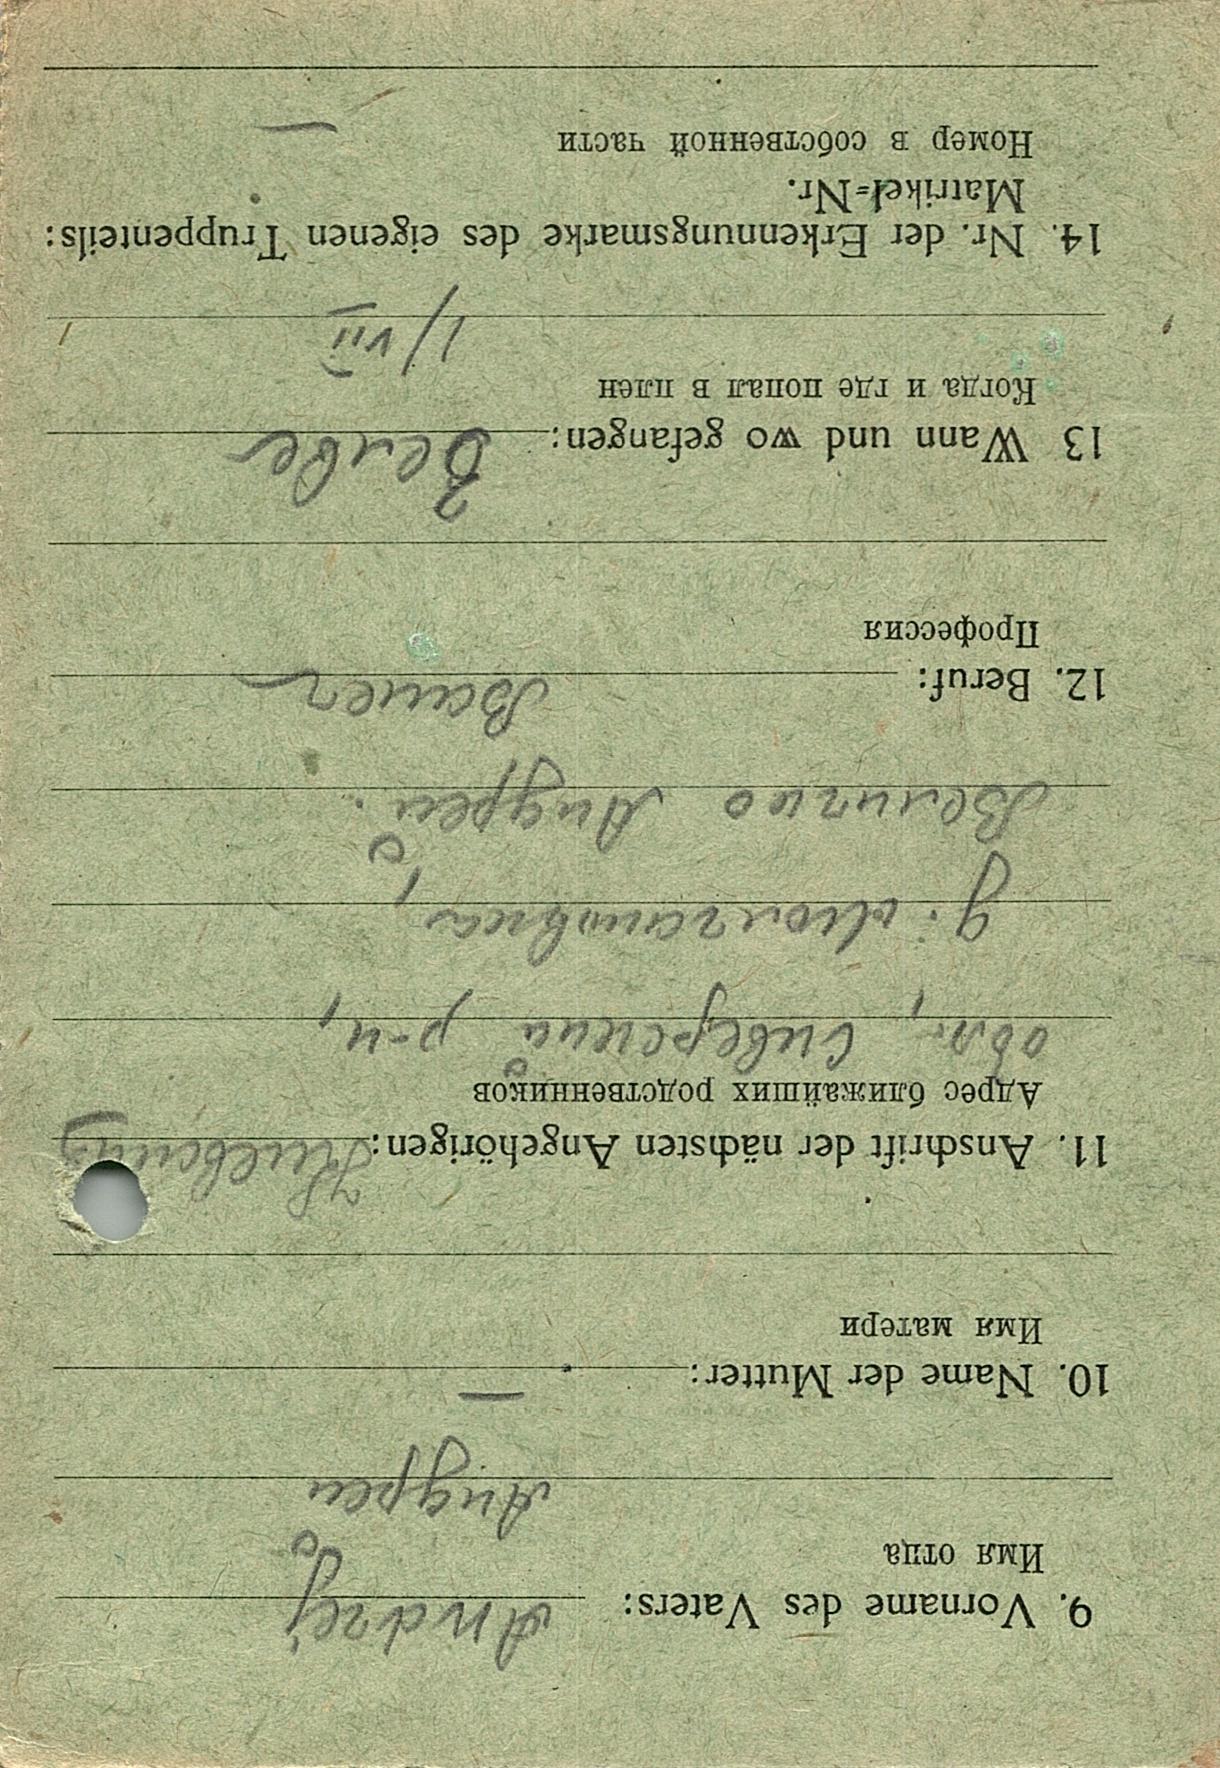 9. Vorname des Vaters: Andrej
Имя отца
Андрей
10. Name der Mutter: —
Имя матери
11. Anschrift der nächsten Angehörigen:
Адрес ближайших родственников
обл,
р-н,
д.
Андрей.
12. Beruf: Bauer
Профессия
13 Wann und wo gefangen:
Когда и где попал в плен
1/VII
14. Nr. der Erkennungsmarke des eigenen Truppenteils:
Matrikel=Nr.
Номер в собственной части —